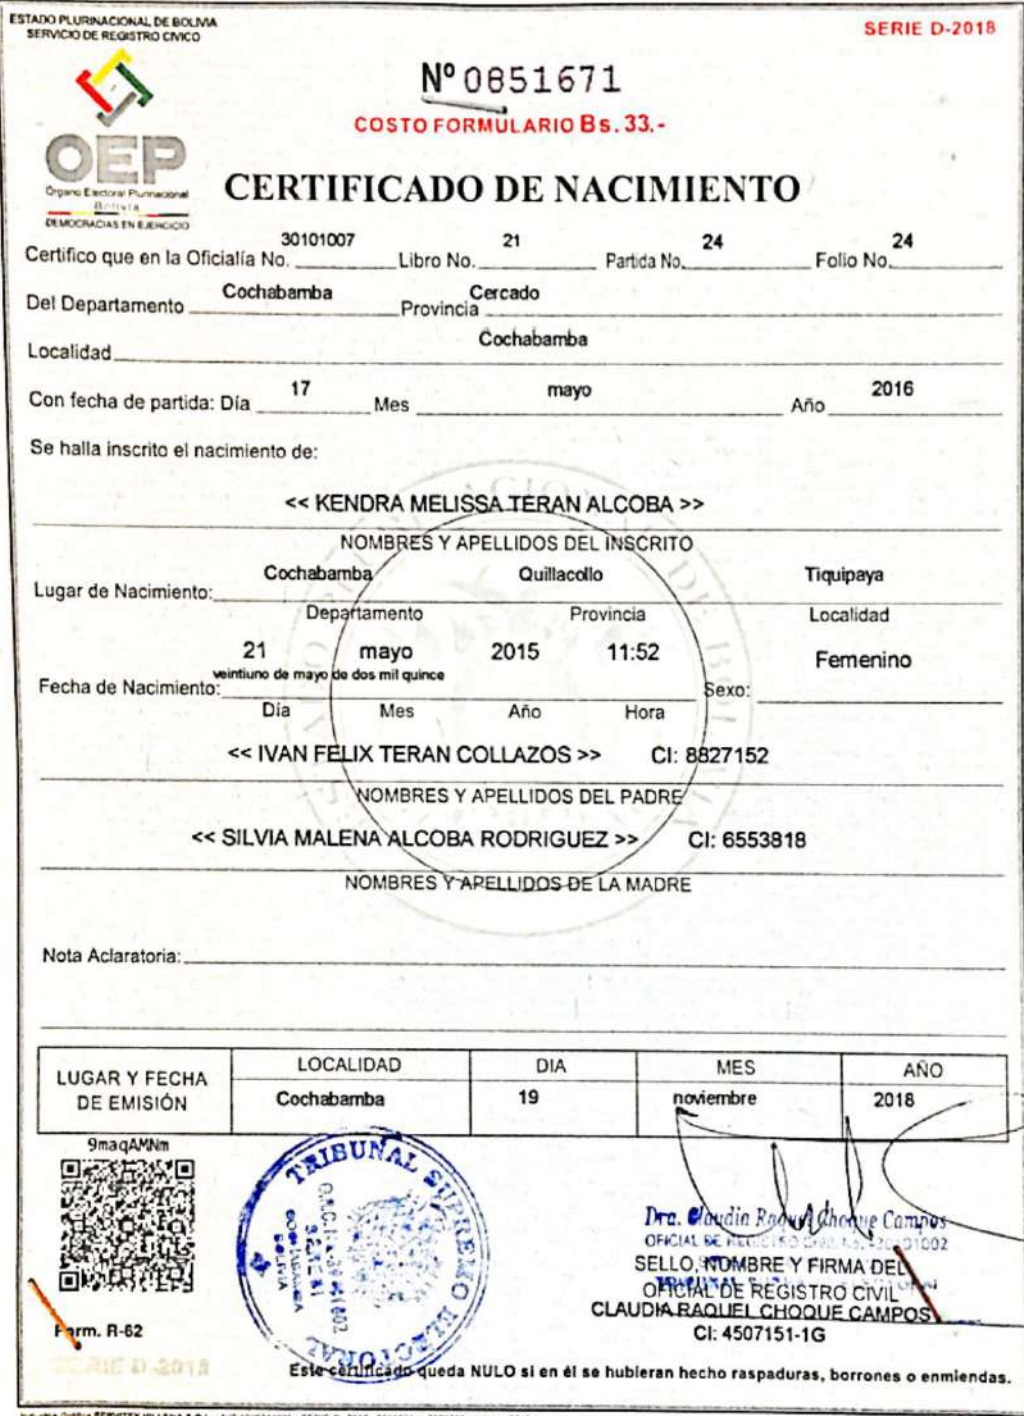 ESTADO PLURINACIONAL DE BOLIVIA
SERVICIO DE REGISTRO CIVICO
SERIE D-2018
Nº 0851671
COSTO FORMULARIO Bs. 33.-
OEP
Órgano Electoral Plurinacional
Bolivia
DEMOCRACIAS EN EJERCICIO
CERTIFICADO DE NACIMIENTO
Certifico que en la Oficialía No. 30101007 Libro No. 21 Partida No. 24 Folio No. 24
Del Departamento Cochabamba Provincia Cercado
Localidad Cochabamba
Con fecha de partida: Día 17 Mes mayo Año 2016
Se halla inscrito el nacimiento de:
<< KENDRA MELISSA TERAN ALCOBA >>
NOMBRES Y APELLIDOS DEL INSCRITO
Lugar de Nacimiento: Cochabamba Quillacollo Tiquipaya
Departamento Provincia Localidad
21 mayo 2015 11:52 Femenino
veintiuno de mayo de dos mil quince
Fecha de Nacimiento: Sexo:
Día Mes Año Hora
<< IVAN FELIX TERAN COLLAZOS >> CI: 8827152
NOMBRES Y APELLIDOS DEL PADRE
<< SILVIA MALENA ALCOBA RODRIGUEZ >> CI: 6553818
NOMBRES Y APELLIDOS DE LA MADRE
Nota Aclaratoria:
LUGAR Y FECHA DE EMISIÓN
LOCALIDAD DIA MES AÑO
Cochabamba 19 noviembre 2018
9maqAMNm
TRIBUNAL SUPREMO ELECTORAL
COCHABAMBA
BOLIVIA
Dra. Claudia Raquel Choque Campos
OFICIAL DE REGISTRO CIVIL
SELLO, NOMBRE Y FIRMA DEL
OFICIAL DE REGISTRO CIVIL
CLAUDIA RAQUEL CHOQUE CAMPOS
CI: 4507151-1G
Form. R-62
SERIE D-2018
Este certificado queda NULO si en él se hubieran hecho raspaduras, borrones o enmiendas.